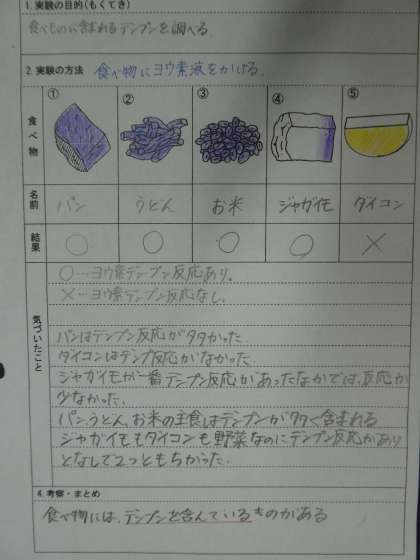 1. 実験の目的(もくてき)
食べものに含まれるデンプンを調べる.
2. 実験の方法 食べ物にヨウ素液をかける.
① ② ③ ④ ⑤
食べ物
名前 パン うどん お米 ジャガイモ ダイコン
結果 ○ ○ ○ ○ ×
気づいたこと
○…ヨウ素デンプン反応あり。
×…ヨウ素デンプン反応なし。
パンはデンプン反応が多かった.
ダイコンはデンプン反応がなかった.
ジャガイモが一番デンプン反応があったなかでは、反応が
少なかった.
パン、うどん、お米の主食はデンプンが多く含まれる
ジャガイモもダイコンも野菜なのにデンプン反応があり
となしで2つともちがった.
4. 考察・まとめ
食べ物には、デンプンを含んでいるものがある